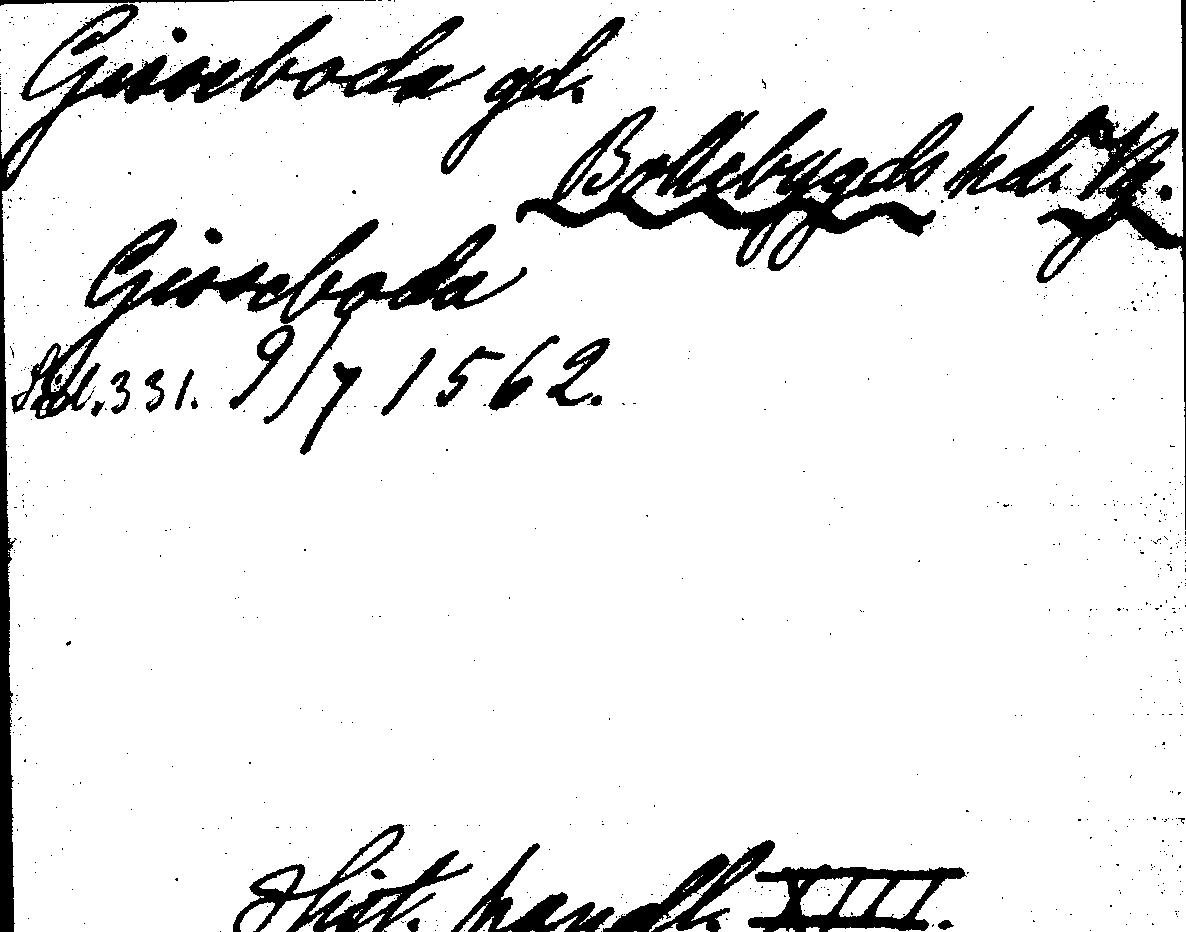 Gisseboda gd.
Bollebygds hd. Vg.
Gisseboda
Hdl. 331. 9/7 1562.
Hist. handl. XIII.